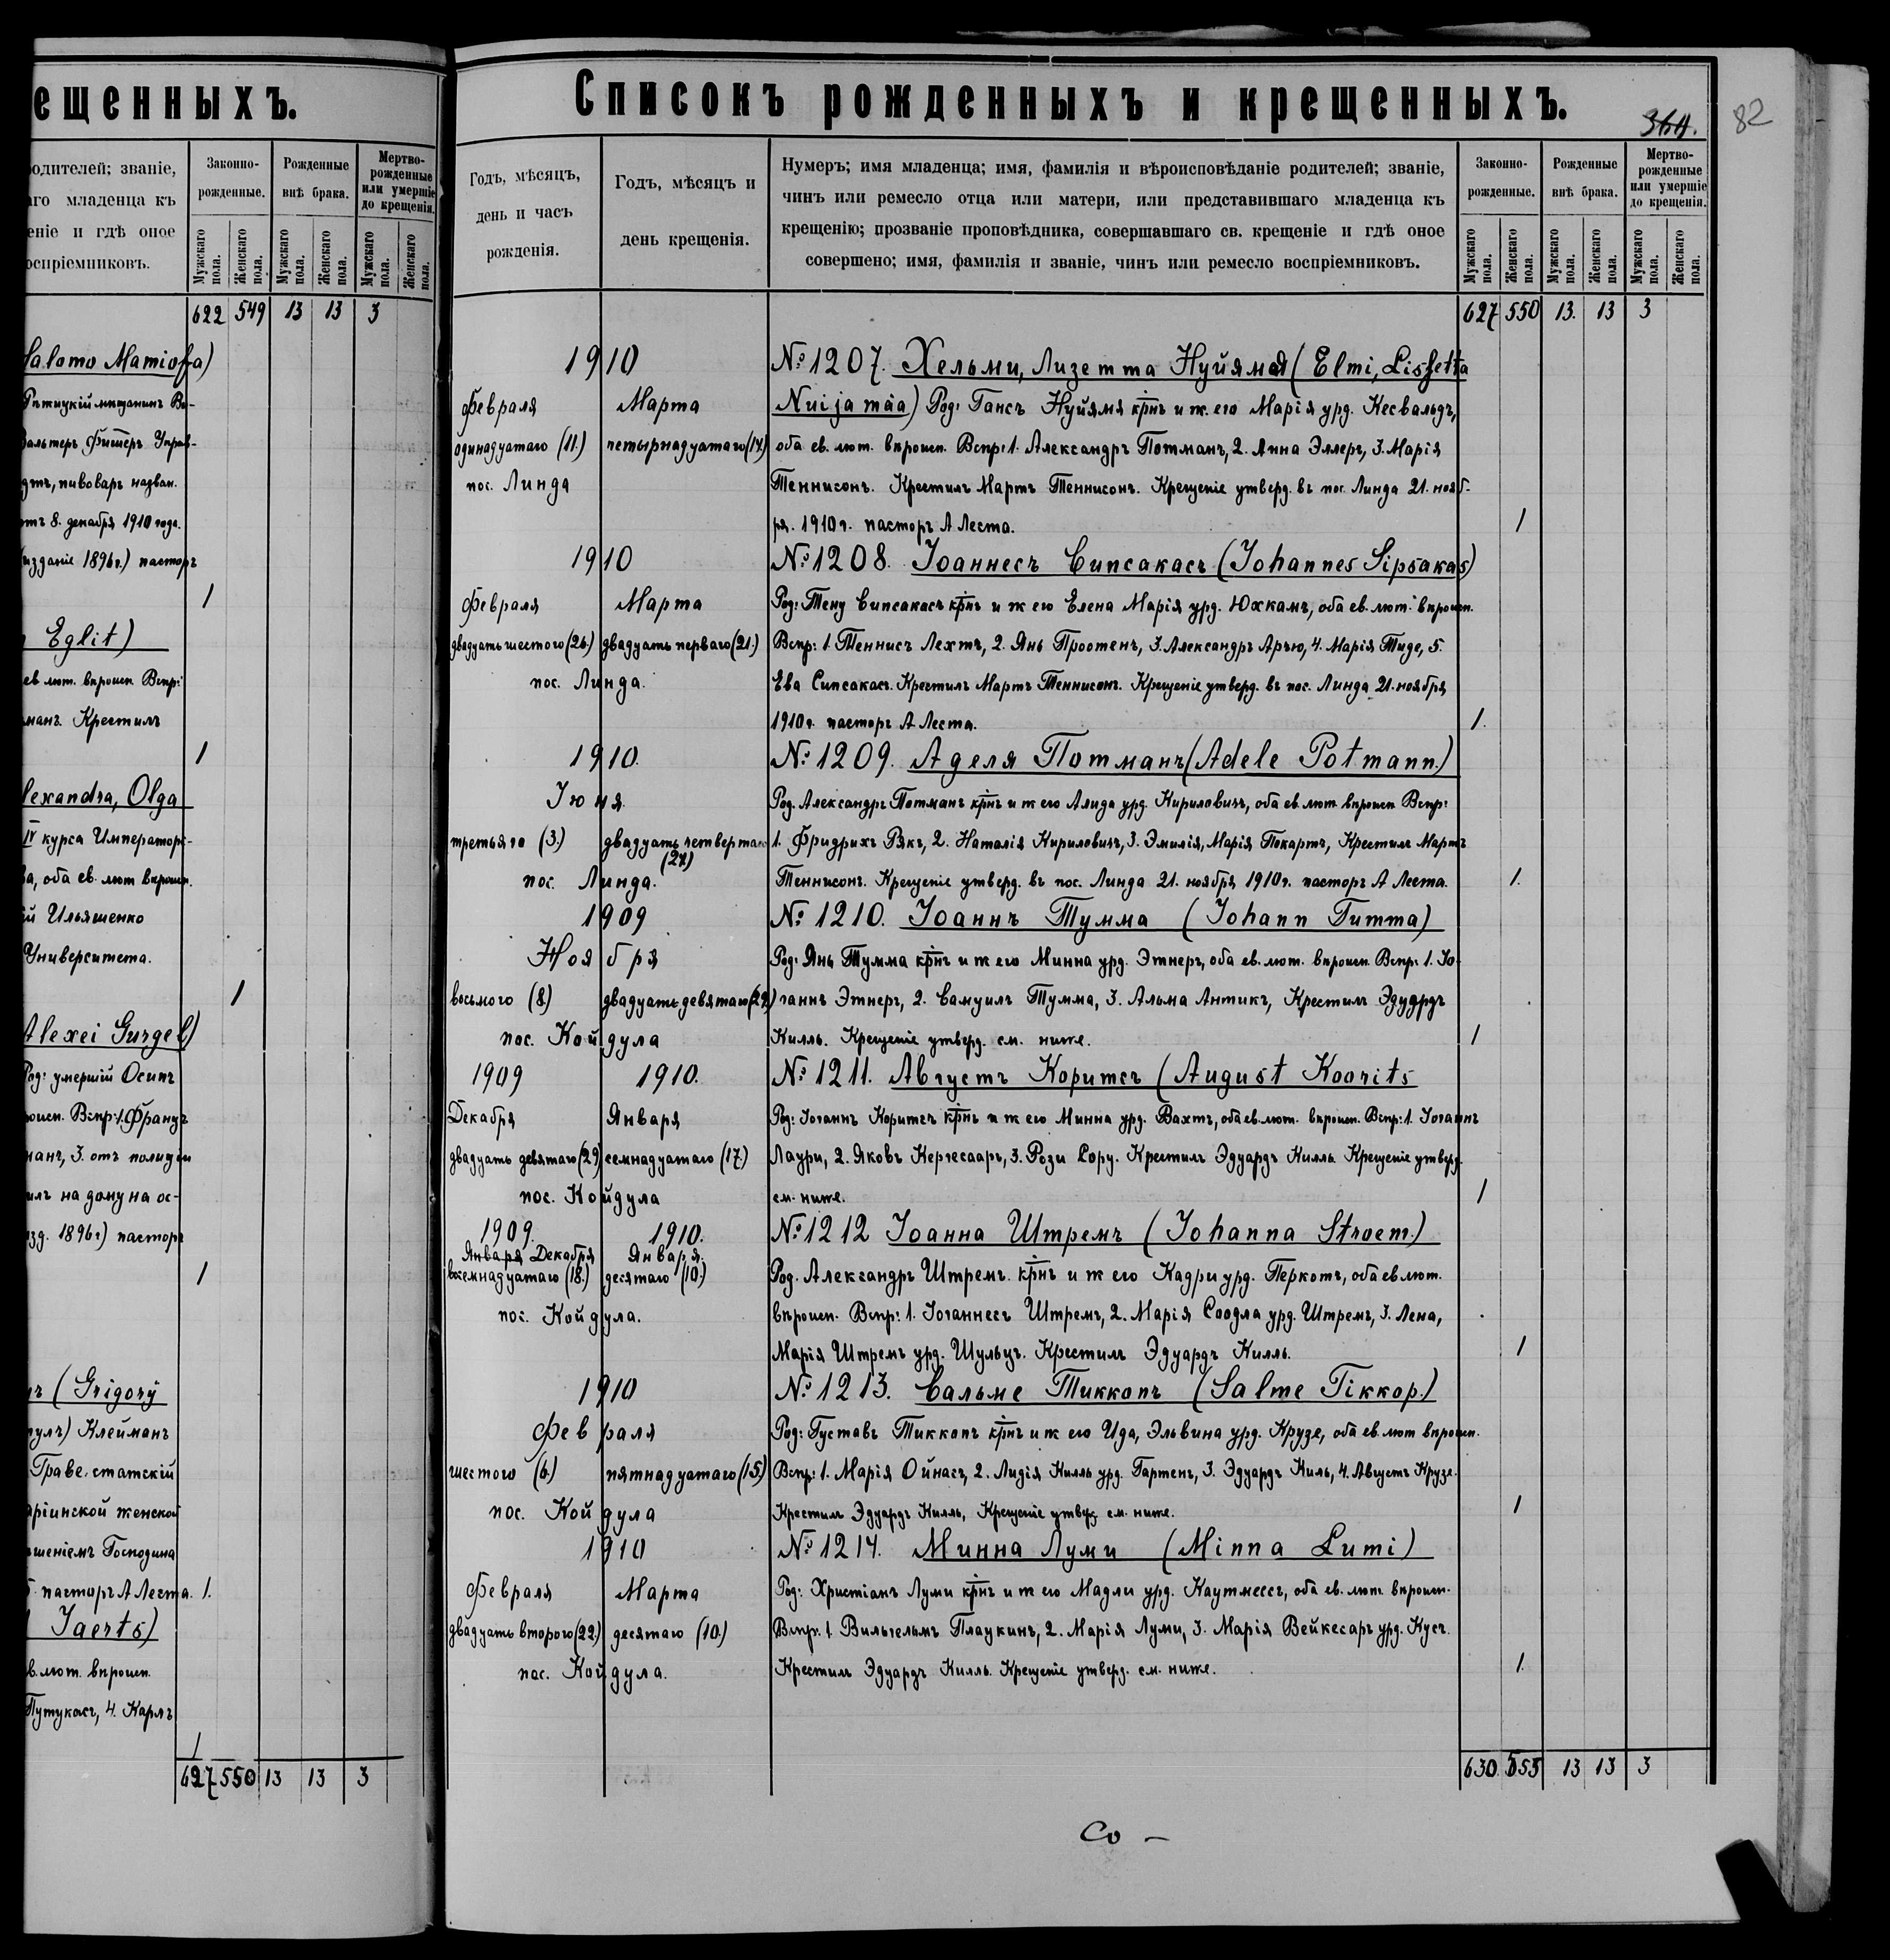 ещенныхъ.
родителей; званіе,
аго младенца къ
еніе и гдѣ оное
оспріемниковъ.
Законно-
рожденные.
Рожденные
внѣ брака.
Мертво-
рожденные
или умершіе
до крещенія.
Мужскаго пола.
Женскаго пола.
Мужскаго пола.
Женскаго пола.
Мужскаго пола.
Женскаго пола.
622 549 13 13 3
Salomo Mamioffa)
альтеръ Фишеръ Управ-
дтъ, пивоваръ назван.
отъ 8. декабря 1910 года.
изданіе 1896г.) пасторъ
1
Eglit)
ев. лют. вѣроисп. Вспр:
манъ. Крестилъ
1
lexandra, Olga
IV курса Императорс-
ва, оба ев. лют вѣроисп.
ій Ильяшенко
Университета.
1
Alexei Gurgel)
Род: умершій Осипъ
роисп. Вспр: 1. Францъ
манъ, 3. отъ полиціи
илъ на дому на ос-
изд. 1896г) пасторъ
1
(Grigorÿ
пулъ) Клейманъ
Граве, статскій
аріинской женской
ошеніемъ Господина
пасторъ А Леста. 1.
Jaerts)
в. лют. вѣроисп.
Путукасъ, 4. Карлъ
1
627 550 13 13 3
Списокъ рожденныхъ и крещенныхъ.
364.
82
Годъ, мѣсяцъ,
день и часъ
рожденія.
Годъ, мѣсяцъ и
день крещенія.
Нумеръ; имя младенца; имя, фамилія и вѣроисповѣданіе родителей; званіе,
чинъ или ремесло отца или матери, или представившаго младенца къ
крещенію; прозваніе проповѣдника, совершавшаго св. крещеніе и гдѣ оное
совершено; имя, фамилія и званіе, чинъ или ремесло воспріемниковъ.
Законно-
рожденные.
Рожденные
внѣ брака.
Мертво-
рожденные
или умершіе
до крещенія.
Мужскаго пола.
Женскаго пола.
Мужскаго пола.
Женскаго пола.
Мужскаго пола.
Женскаго пола.
627 550 13. 13 3
1910 № 1207. Хельми, Лизетта Нуйямя (Elmi, Lissetta
февраля Марта Nuijamäa) Род: Гансъ Нуйямя крнъ и ж. его Марія урд. Кесвальдъ,
одинадцатаго (11.) четырнадцатаго (14.) оба ев. лют. вѣроисп. Вспр: 1. Александръ Потманъ, 2. Анна Эллеръ, 3. Марія
пос. Линда Теннисонъ. Крестилъ Мартъ Теннисонъ. Крещеніе утверд. въ пос. Линда 21. нояб-
ря. 1910г. пасторъ А Леста. 1
1910 № 1208. Іоаннесъ Сипсакасъ (Johannes Sipsakas)
февраля Марта Род: Тену Сипсакасъ крнъ и ж его Елена Марія урд. Юхкамъ, оба ев. лют. вѣроисп.
двадцать шестого (26.) двадцать перваго (21.) Вспр: 1. Теннисъ Лехтъ, 2. Янь Проотенъ, 3. Александръ Арью, 4. Марія Тиде, 5.
пос. Линда. Ева Сипсакасъ. Крестилъ Мартъ Теннисонъ. Крещеніе утверд. въ пос. Линда 21. ноября
1910г. пасторъ А Леста. 1.
1910. № 1209. Аделя Потманъ (Adele Potmann.)
Іюня. Род. Александръ Потманъ крнъ и ж его Алида урд. Кириловичъ, оба ев. лют вѣроисп Вспр:
третьяго (3.) двадцать четвертаго 1. Фридрихъ Рякъ, 2. Наталія Кириловичъ, 3. Эмилія, Марія Покартъ, Крестилъ Мартъ
(24)
пос. Линда. Теннисонъ. Крещеніе утверд. въ пос. Линда 21. ноября 1910г. пасторъ А Леста. 1.
1909 № 1210. Іоаннъ Тумма (Johann Tumma)
Ноября Род: Янь Тумма крнъ и ж его Минна урд. Этнеръ, оба ев. лют. вѣроисп. Вспр: 1. Іо-
восьмого (8.) двадцать девятаго (29.) ганнъ Этнеръ, 2. Самуилъ Тумма, 3. Альма Антикъ, Крестилъ Эдуардъ
пос. Койдула Килль. Крещеніе утверд. см. ниже. 1
1909 1910. № 1211. Августъ Коритсъ (August Koorits
Декабря Января Род: Іоганнъ Коритсъ крнъ и ж его Минна урд. Вахтъ, оба ев. лют. вѣроисп. Вспр: 1. Іоганнъ
двадцать девятаго (29) семнадцатаго (17.) Лаури, 2. Яковъ Кергесааръ, 3. Рози Сору. Крестилъ Эдуардъ Килль. Крещеніе утверд.
пос. Койдула см. ниже. 1
1909. 1910. № 1212 Іоанна Штремъ (Johanna Stroem.)
Января Декабря Января.
восемнадцатаго (18.) десятаго (10.) Род. Александръ Штремъ. крнъ и ж его Кадри урд. Перкотъ, оба ев лют.
пос. Койдула. вѣроисп. Вспр: 1. Іоганнесъ Штремъ, 2. Марія Соодла урд. Штремъ, 3. Лена,
Марія Штремъ урд. Шульцъ. Крестилъ Эдуардъ Килль. 1
1910 № 1213. Сальме Тиккопъ (Salme Tikkop.)
Февраля Род: Густавъ Тиккопъ крнъ и ж его Ида, Эльвина урд. Крузе, оба ев. лют вѣроисп.
шестого (6.) пятнадцатаго (15.) Вспр: 1. Марія Ойнасъ, 2. Лидія Килль урд. Гартенъ, 3. Эдуардъ Киль, 4. Августъ Крузе.
пос. Койдула Крестилъ Эдуардъ Килль, Крещеніе утверд см. ниже. 1
1910 № 1214. Минна Луми (Minna Lumi)
Февраля Марта Род: Христіанъ Луми крнъ и ж его Мадли урд. Каутмессъ, оба ев. лют. вѣроисп.
двадцать второго (22.) десятаго (10.) Вспр: 1. Вильгельмъ Плаукинъ, 2. Марія Луми, 3. Марія Вейкесаръ урд. Кусъ.
пос. Койдула. Крестилъ Эдуардъ Килль. Крещеніе утверд. см. ниже. 1.
630 555 13 13 3
Со -